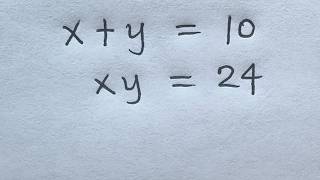 x + y = 10
xy = 24